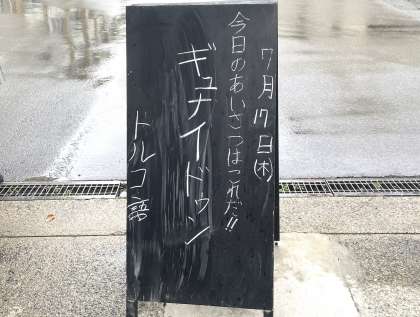 7月17日(木)
今日のあいさつはこれだ!!
ギュナイドゥン
トルコ語